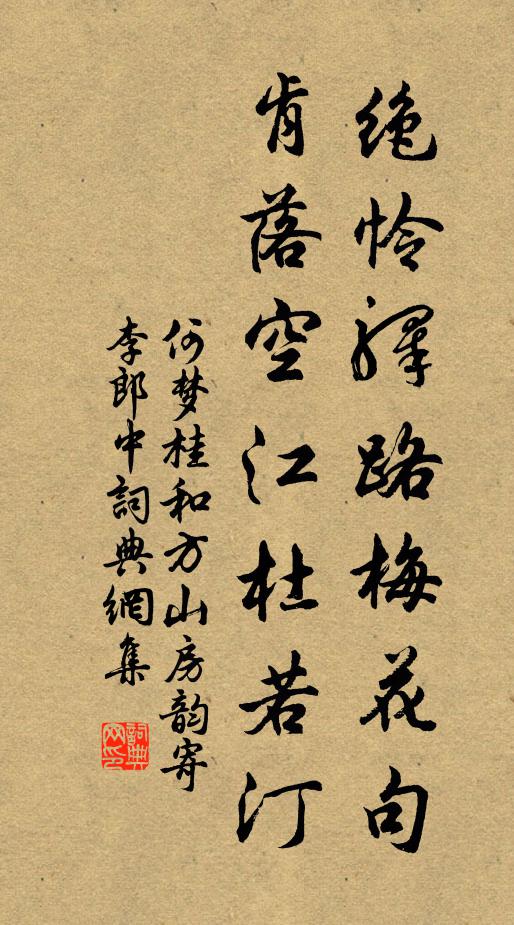 絶怜驛路梅花句
肯落空江杜若汀
何梦桂和方山房韵寄
李郎中詞典網集
詞典
网印